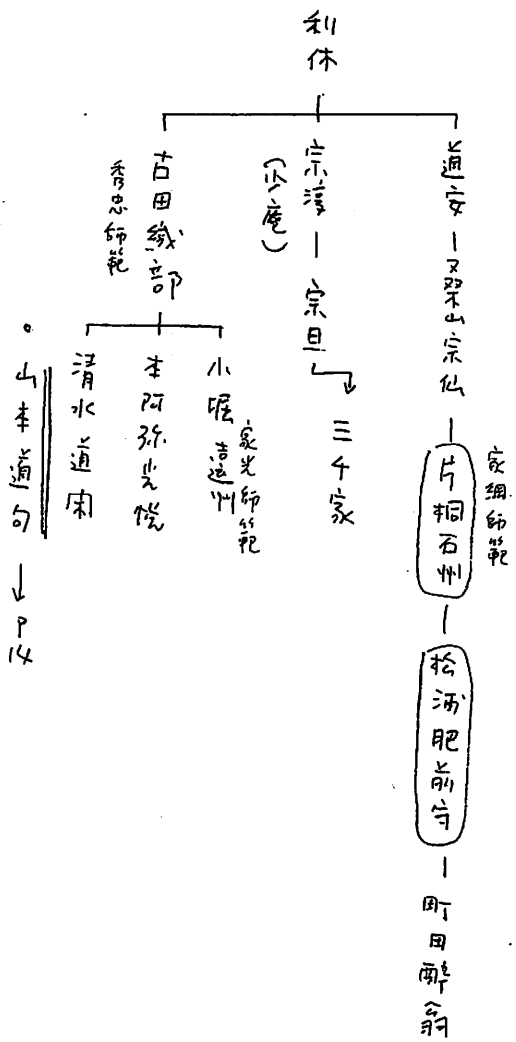 利休
道安
桑山宗仙
片桐石州
家綱師範
松浦肥前守
町田酔翁
宗淳
(少庵)
宗旦
三千家
古田織部
秀忠師範
小堀遠州
家光師範
本阿弥光悦
清水道閑
山本道句
P14